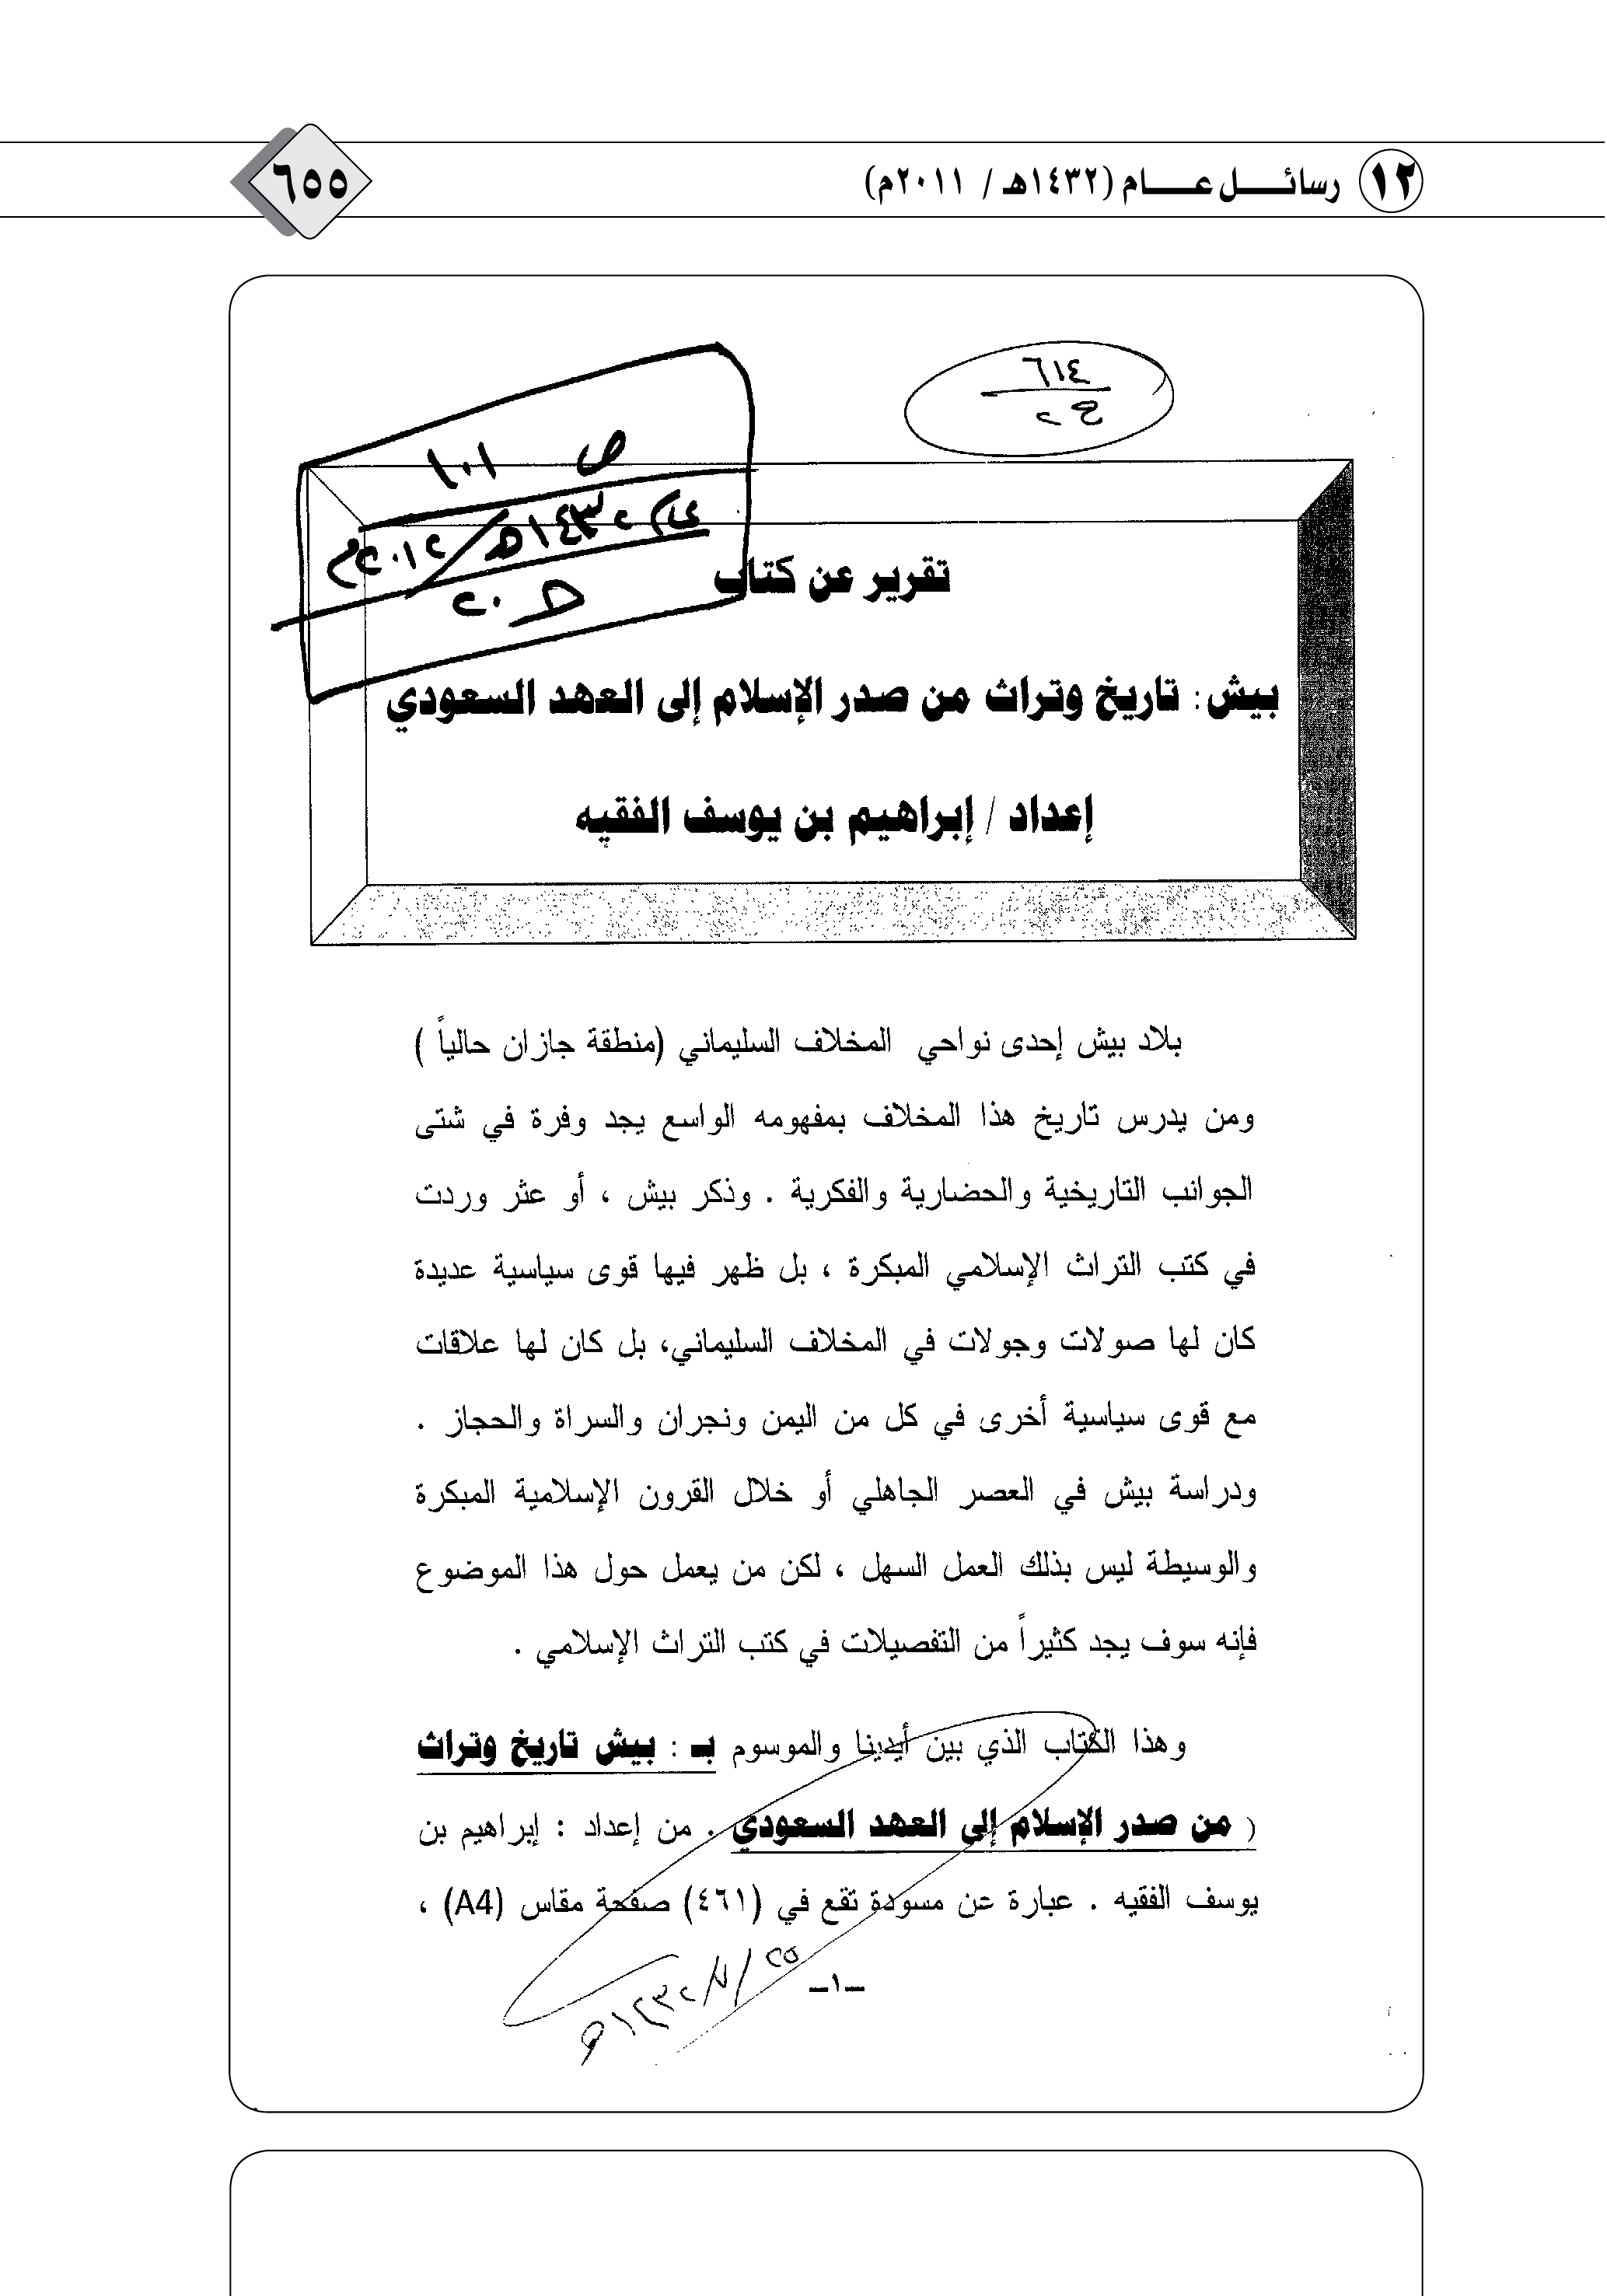 ١٢ رسائل عام (١٤٣٢هـ / ٢٠١١م)
٦٥٥
٦١٤
ح ٢
ص ١٠١
عام ١٤٣٢هـ / ٢٠١٢م
ح ٢٠
تقرير عن كتاب
بيش: تاريخ وتراث من صدر الإسلام إلى العهد السعودي
إعداد / إبراهيم بن يوسف الفقيه
بلاد بيش إحدى نواحي المخلاف السليماني (منطقة جازان حالياً )
ومن يدرس تاريخ هذا المخلاف بمفهومه الواسع يجد وفرة في شتى
الجوانب التاريخية والحضارية والفكرية . وذكر بيش ، أو عثر وردت
في كتب التراث الإسلامي المبكرة ، بل ظهر فيها قوى سياسية عديدة
كان لها صولات وجولات في المخلاف السليماني، بل كان لها علاقات
مع قوى سياسية أخرى في كل من اليمن ونجران والسراة والحجاز .
ودراسة بيش في العصر الجاهلي أو خلال القرون الإسلامية المبكرة
والوسيطة ليس بذلك العمل السهل ، لكن من يعمل حول هذا الموضوع
فإنه سوف يجد كثيراً من التفصيلات في كتب التراث الإسلامي .
وهذا الكتاب الذي بين أيدينا والموسوم بـ : بيش تاريخ وتراث
( من صدر الإسلام إلى العهد السعودي . من إعداد : إبراهيم بن
يوسف الفقيه . عبارة عن مسودة تقع في (٤٦١) صفحة مقاس (A4) ،
–١–
٢٥/٧/١٤٣٢هـ